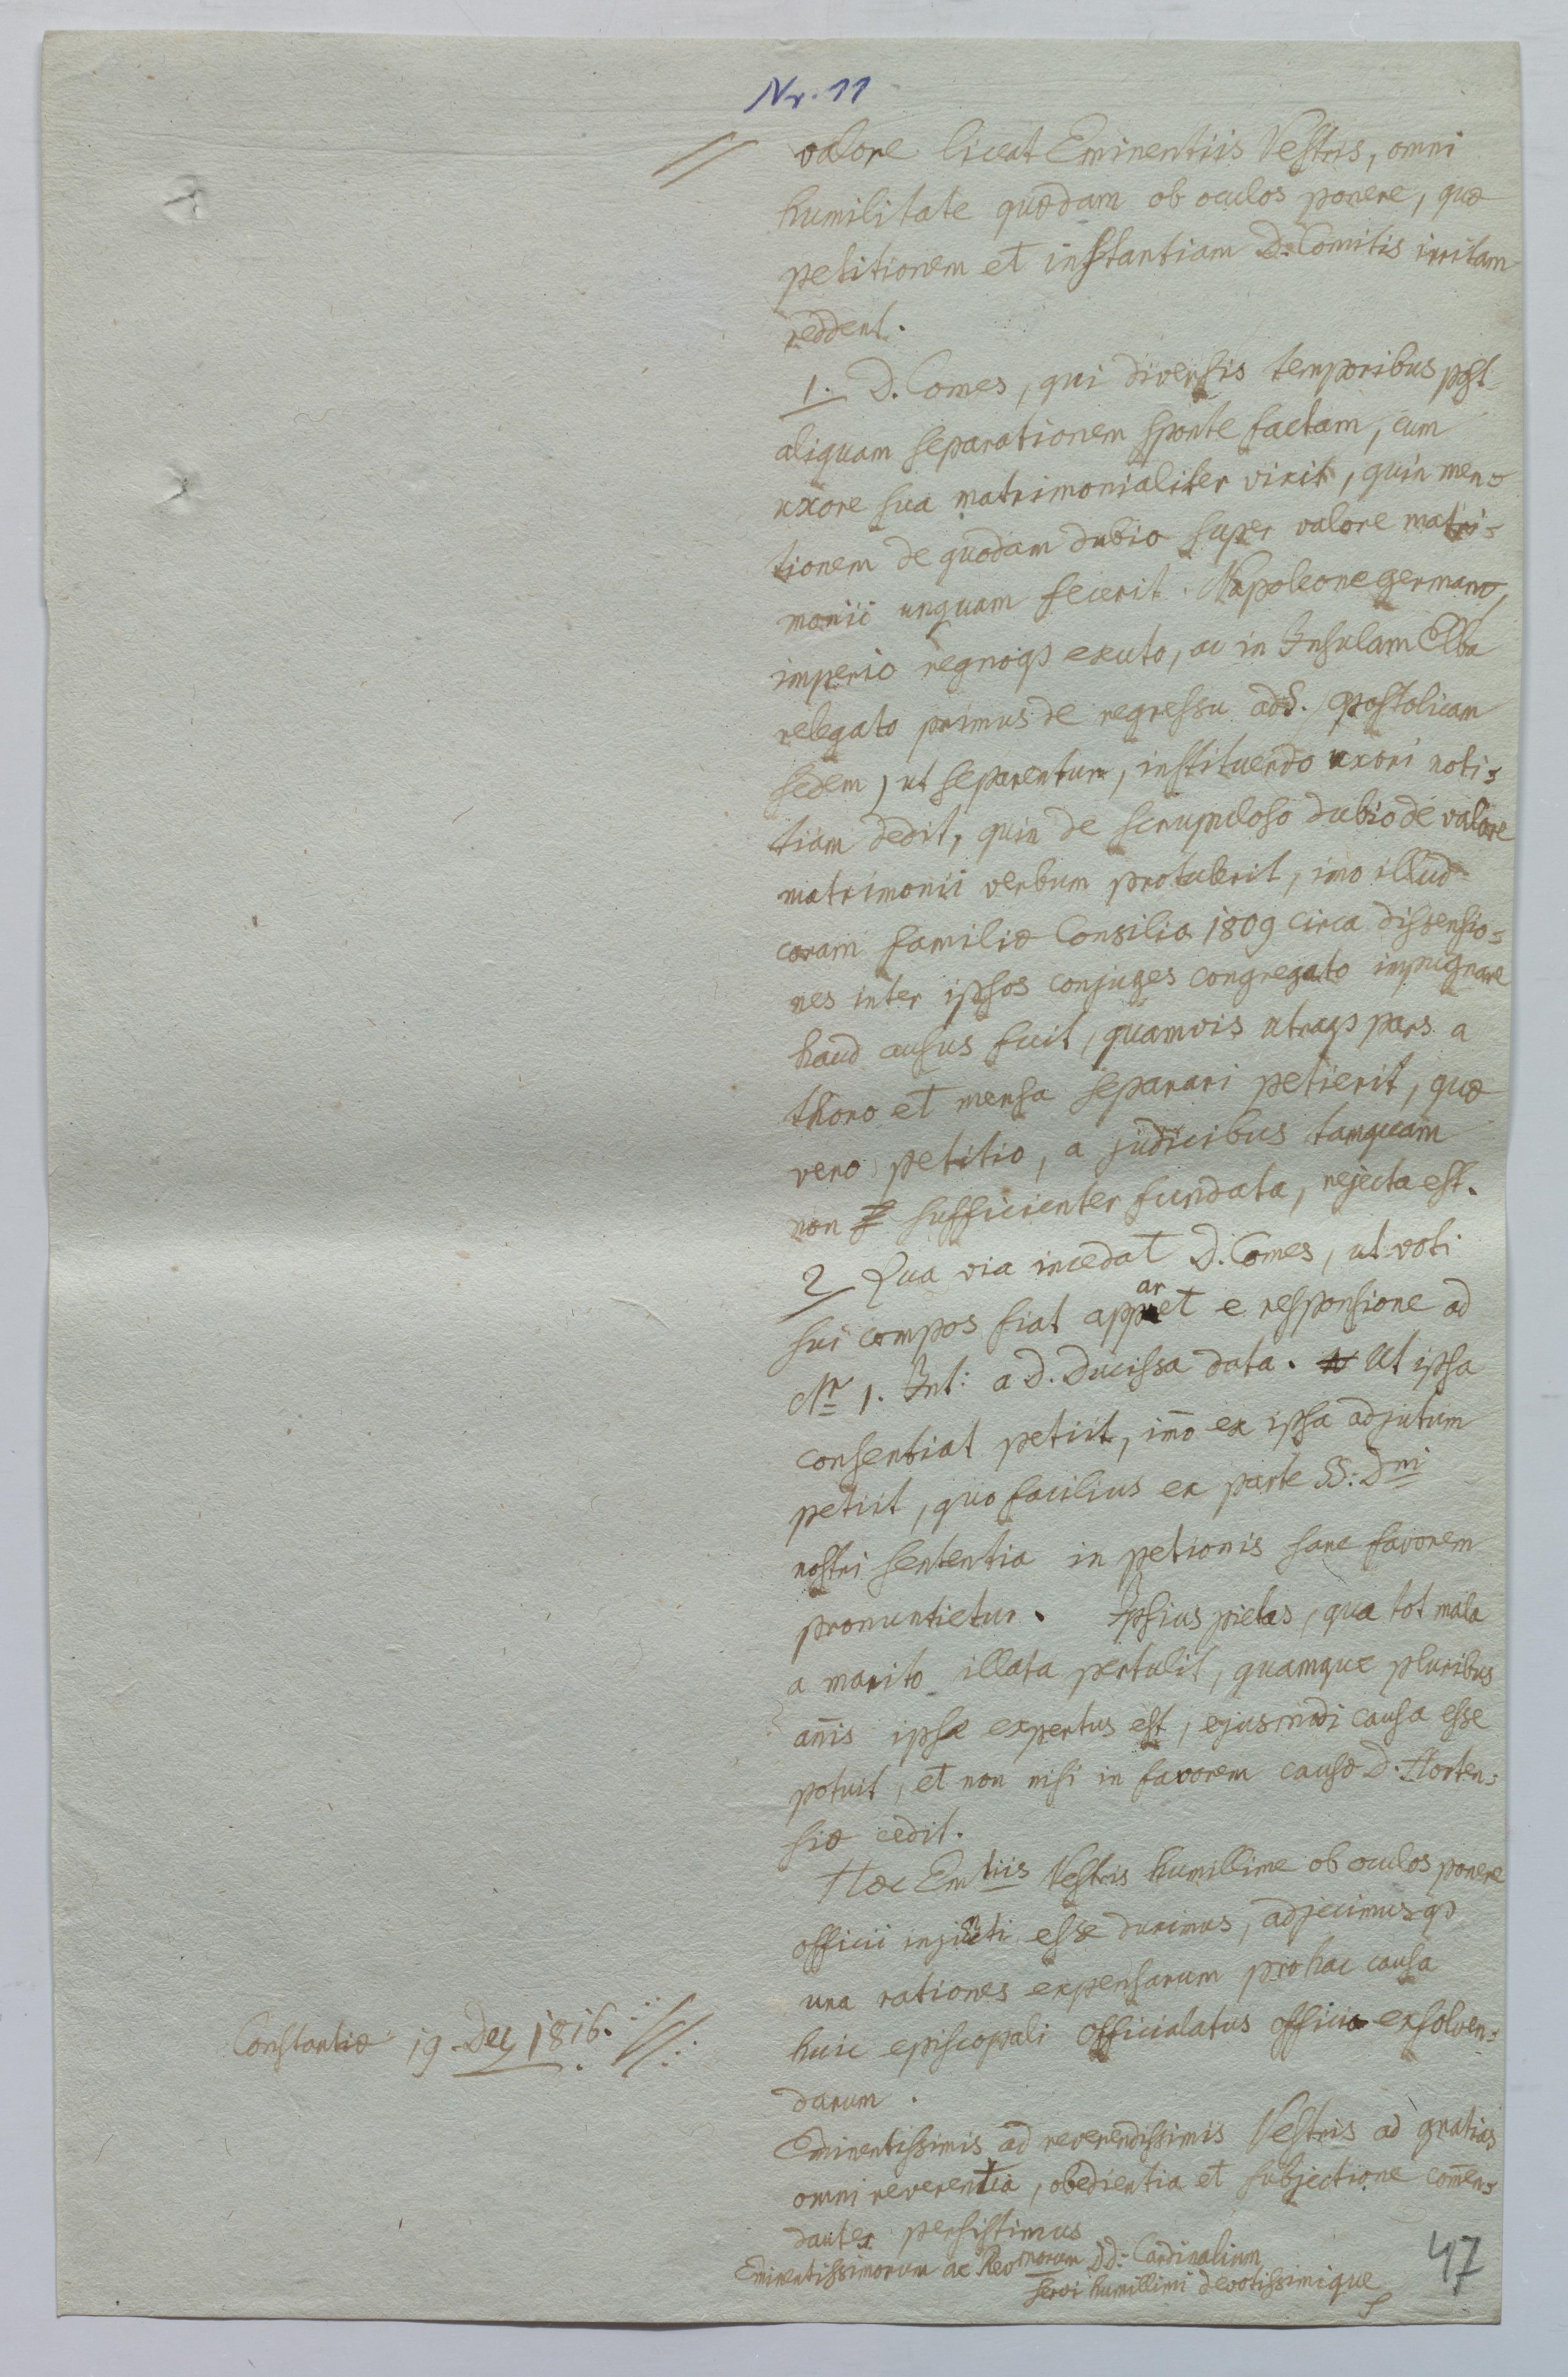 Nr. 11
// valore liceat Eminentiis Vestris, omni
humilitate quædam ob oculos ponere, quæ
petitionem et instantiam D: Comitis irritam
reddent.
1. D. Comes, qui diversis temporibus post
aliquam separationem sponte factam, cum
uxore sua matrimonialiter vixit, quin men=
tionem de quodam dubio super valore matri=
monii unquam fecerit. Napoleone germano,
imperio regnoq3 exuto, ac in Insulam Elba
relegato primus de regressu ad S. apostolicam
sedem, ut separentur, instituendo uxori noti=
tiam dedit, quin de scrupuloso dubio de valore
matrimonii verbum protulerit, imo illud
coram familiæ Consilio 1809 circa dissensio=
nes inter ipsos conjuges congregato impugnare
haud ausus fuit, quamvis utraq3 pars a
thoro et mensa separari petierit, quæ
vero petitio, a judicibus tamquam
non sufficienter fundata, rejecta est.
2 Qua via incedat D. Comes, ut voti
sui compos fiat apparet e responsione ad
Nr 1. Int: a D. Ducissa data. Ut ipsa
consentiat petiit, im̄o ex ipsa adjutum
petiit, quo facilius ex parte SS: Dni
nostri sententia in petionis sane favorem
pronuntietur. Ipsius pietas, qua tot mala
a marito illata pertulit, quamque pluribus
an̄is ipse expertus est, ejusmodi causa esse
potuit, et non nisi in favorem causæ D. Horten=
siæ cedit.
Hæc Emtiis Vestris humillime ob oculos ponere
officii injuncti esse duximus, adjecimusq3
una rationes expensarum pro hac causa
huic episcopali Officialatus officio exsolven=
darum.
Constantiæ 19. Dec 1816. //
Eminentissimis ad reverendissimis Vestris ad gratias
omni reverentia, obedientia et subjectione com̄en=
dantes persistimus
Eminentissimorum ac Revmorum DD: Cardinalium
servi humillimi devotissimique
47